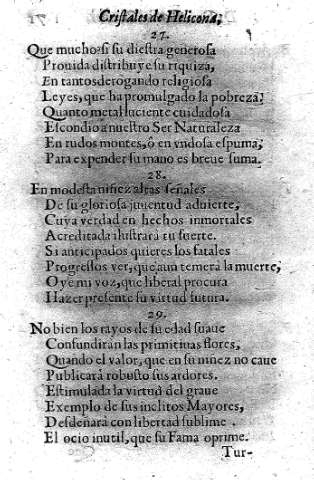 Cristales de Helicona,
27.
Que mucho si su diestra generosa
Prouida distribuye su riquiza,
En tantos derogando religiosa
Leyes, que ha promulgado la pobreza?
Quanto metal luciente cuidadosa
Escondio a nuestro Ser Naturaleza
En rudos montes, ò en vndosa espuma,
Para expender su mano es breue suma.
28.
En modesta niñez altas señales
De su gloriosa juventud aduierte,
Cuya verdad en hechos inmortales
Acreditada ilustrarà tu suerte.
Si anticipados quieres los fatales
Progressos ver, que aun temerà la muerte,
Oye mi voz, que liberal procura
Hazer presente su virtud futura.
29.
No bien los rayos de su edad suaue
Confundiràn las primitiuas flores,
Quando el valor, que en su niñez no caue
Publicarà robusto sus ardores.
Estimulada la virtud del graue
Exemplo de sus inclitos Mayores,
Desdeñarà con libertad sublime
El ocio inutil, que su Fama oprime.
Tur-